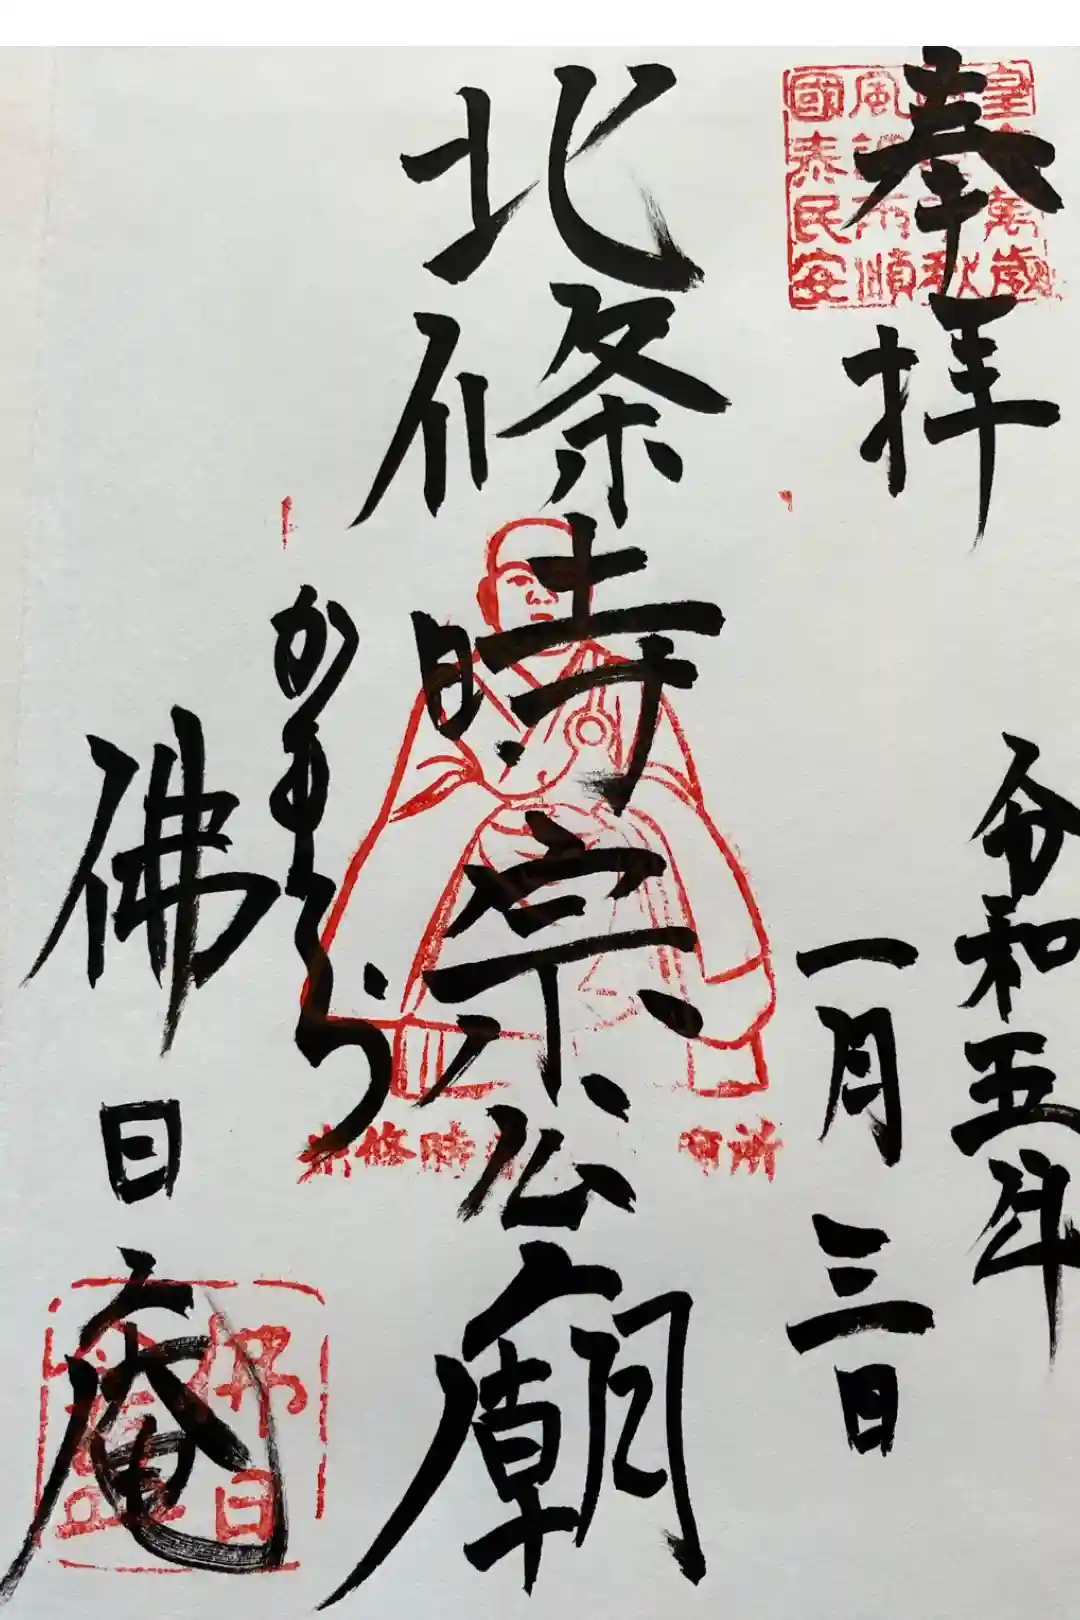 奉拝
皇 萬歳
秋
風調雨順
國泰民安
令和五年
一月三日
北條時宗公廟
條時 所
かまくら
佛日庵
佛日